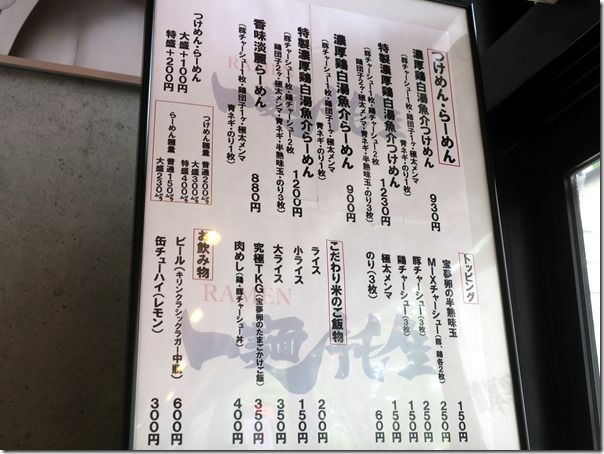 つけめん・らーめん
濃厚鶏白湯魚介つけめん 930円
(豚チャーシュー1枚・鶏団子1ヶ・極太メンマ
青ネギ・のり1枚)
特製濃厚鶏白湯魚介つけめん 1230円
(豚チャーシュー1枚・鶏チャーシュー2枚
鶏団子2ヶ・極太メンマ・青ネギ・半熟味玉・のり3枚)
濃厚鶏白湯魚介らーめん 900円
(豚チャーシュー1枚・鶏団子1ヶ・極太メンマ
青ネギ・のり1枚)
特製濃厚鶏白湯魚介らーめん 1200円
(豚チャーシュー1枚・鶏チャーシュー2枚
鶏団子2ヶ・極太メンマ・青ネギ・半熟味玉・のり3枚)
香味淡麗らーめん 880円
(豚チャーシュー1枚・鶏団子1ヶ・極太メンマ
青ネギ・のり1枚)
つけめん・らーめん
大盛+100円
特盛+200円
つけめん麺量 普通200㌘
大盛300㌘
特盛400㌘
らーめん麺量 普通150㌘
大盛230㌘
トッピング
宝夢卵の半熟味玉 150円
MIXチャーシュー(豚、鶏各2枚) 250円
豚チャーシュー(3枚) 250円
鶏チャーシュー(3枚) 150円
極太メンマ 150円
のり(3枚) 60円
こだわり米のご飯物
ライス 200円
小ライス 150円
大ライス 350円
究極TKG(宝夢卵のたまごかけご飯) 350円
肉めし(鶏・豚チャーシュー丼) 400円
お飲み物
ビール(キリンクラシックラガー中瓶) 600円
缶チューハイ(レモン) 300円
RAMEN